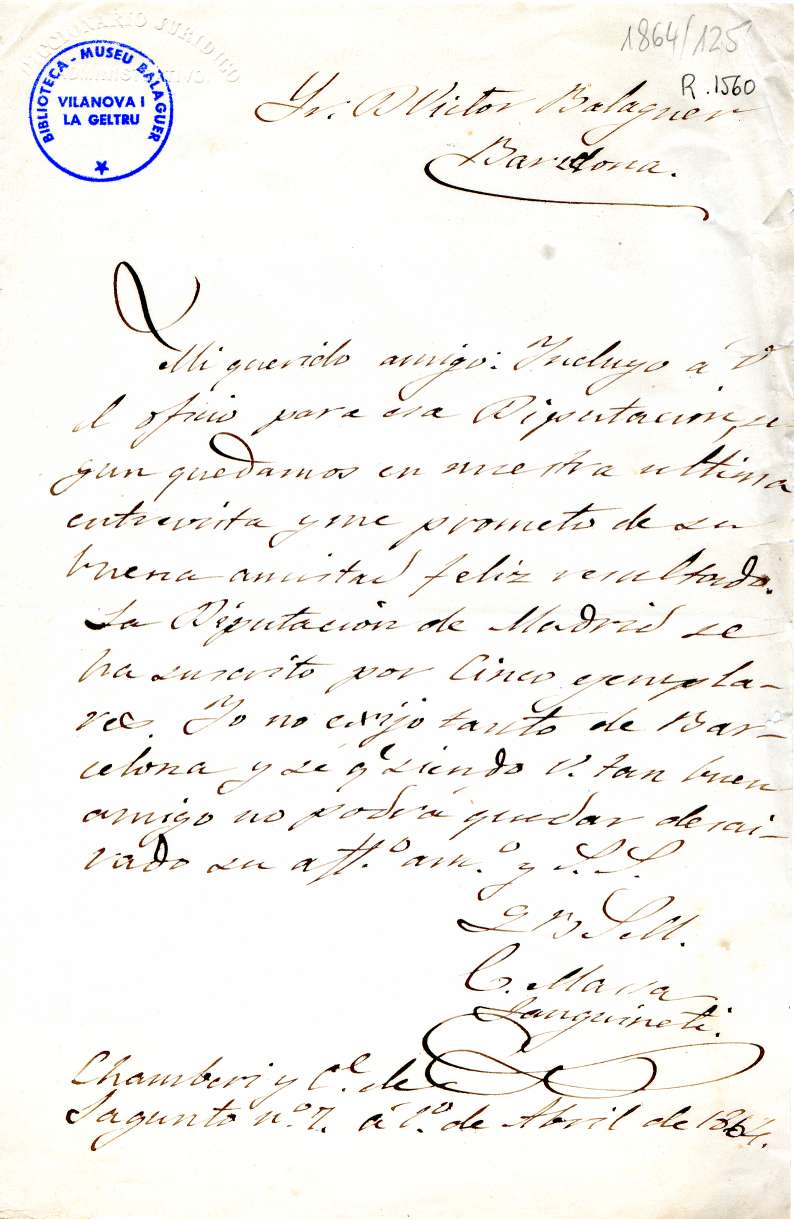 DICCIONARIO JURIDICO
ADMINISTRATIVO.
BIBLIOTECA - MUSEU BALAGUER
VILANOVA I
LA GELTRU
1864/125
R.1560
Sr. D Victor Balaguer
Barcelona.
Mi querido amigo: Incluyo á V.
el oficio para esa Diputacion, se
gun quedamos en nuestra ultima
entrevista y me prometo de su
buena amistad feliz resultado.
La Diputación de Madrid se
ha suscrito por Cinco ejempla-
res. Yo no exijo tanto de Bar-
celona y sé q.e siendo V. tan buen
amigo no podrá quedar desai-
rado su aff.o am.o y S. S.
q B S. M.
C. Massa
Sanguineti.
Chamberi y C.e de
Sagunto n.o 7. á 1.o de Abril de 1864.